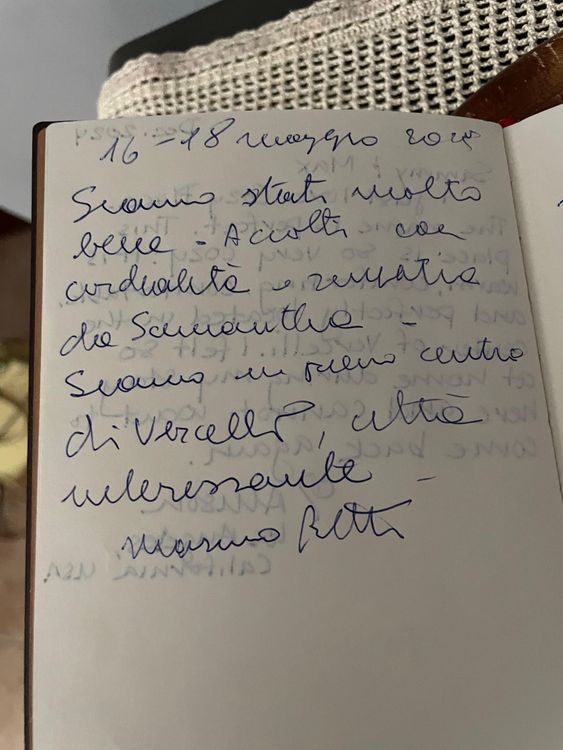 16 - 18 maggio 2025
Siamo stati molto
bene - Accolti con
cordialità e simpatia
da Samantha -
Siamo in pieno centro
di Vercelli, città
interessante -